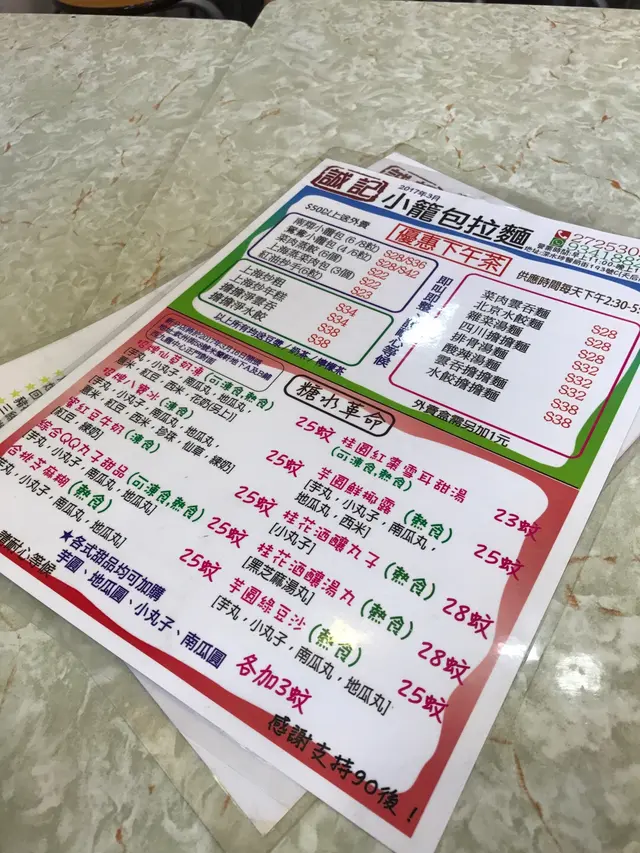 誠記
2017年3月
小籠包拉麵
272530
$50以上送外賣
優惠下午茶
供應時間每天下午2:30-5
南翔小籠包 (6/8粒) $28/$36
窩窩小籠包 (4/6粒) $28/$42
菜肉蒸餃 (6個) $22
上海蒸菜肉包 (3個) $22
紅油炒手(6粒) $23
上海炒粗 $34
上海炒年糕 $34
擔擔淨雲吞 $38
擔擔淨水餃 $38
以上所有均送豆漿 / 奶茶 / 檸檬茶
菜肉雲吞麵 $28
北京水餃麵 $28
雜菜湯麵 $28
四川擔擔麵 $32
排骨湯麵 $32
酸辣湯麵 $32
雲吞擔擔麵 $38
水餃擔擔麵 $38
外賣盒需另加1元
糖水革命
(可凍食熱食)
[芋丸,小丸子,南瓜丸,地瓜丸,
25蚊
八寶冰 (凍食)
25蚊
紅豆牛奶 (凍食)
[紅豆,練奶]
25蚊
綜合QQ丸子甜品 (可凍食熱食)
[芋丸,小丸子,南瓜丸,地瓜丸]
25蚊
(熱食)
芋丸,小丸子,南瓜丸,地瓜丸]
25蚊
桂圓紅棗雪耳甜湯
(可凍食熱食)
23蚊
芋圓鮮椰露 (熱食)
[芋丸,小丸子,南瓜丸,
地瓜丸,西米]
25蚊
桂花酒釀丸子 (熱食)
[小丸子]
28蚊
桂花酒釀湯丸 (熱食)
[黑芝麻湯丸]
28蚊
芋圓綠豆沙 (熱食)
[芋丸,小丸子,南瓜丸,地瓜丸]
25蚊
請耐心等候
★各式甜品均可加購
芋圓、地瓜圓、小丸子、南瓜圓
各加3蚊
感謝支持90後!